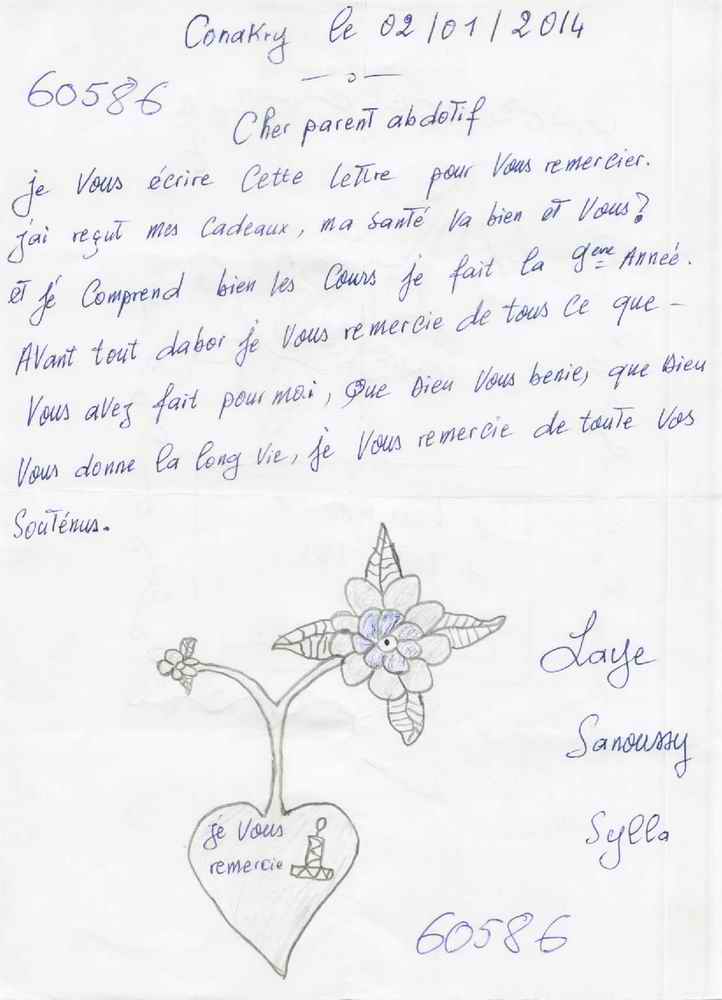 Conakry le 02/01/2014
60586
Cher parent abdotif
je Vous écrire Cette lettre pour Vous remercier.
j'ai reçut mes Cadeaux, ma santé va bien et Vous?
et jé Comprend bien les Cours je fait la 9eme Année.
Avant tout dabor je Vous remercie de tous Ce que -
Vous avez fait pour moi, Que Dieu Vous benie, que Dieu
Vous donne la long vie, je Vous remercie de toute Vos
Souténus.
Laye
Sanoussy
Sylla
je Vous
remercie
60586